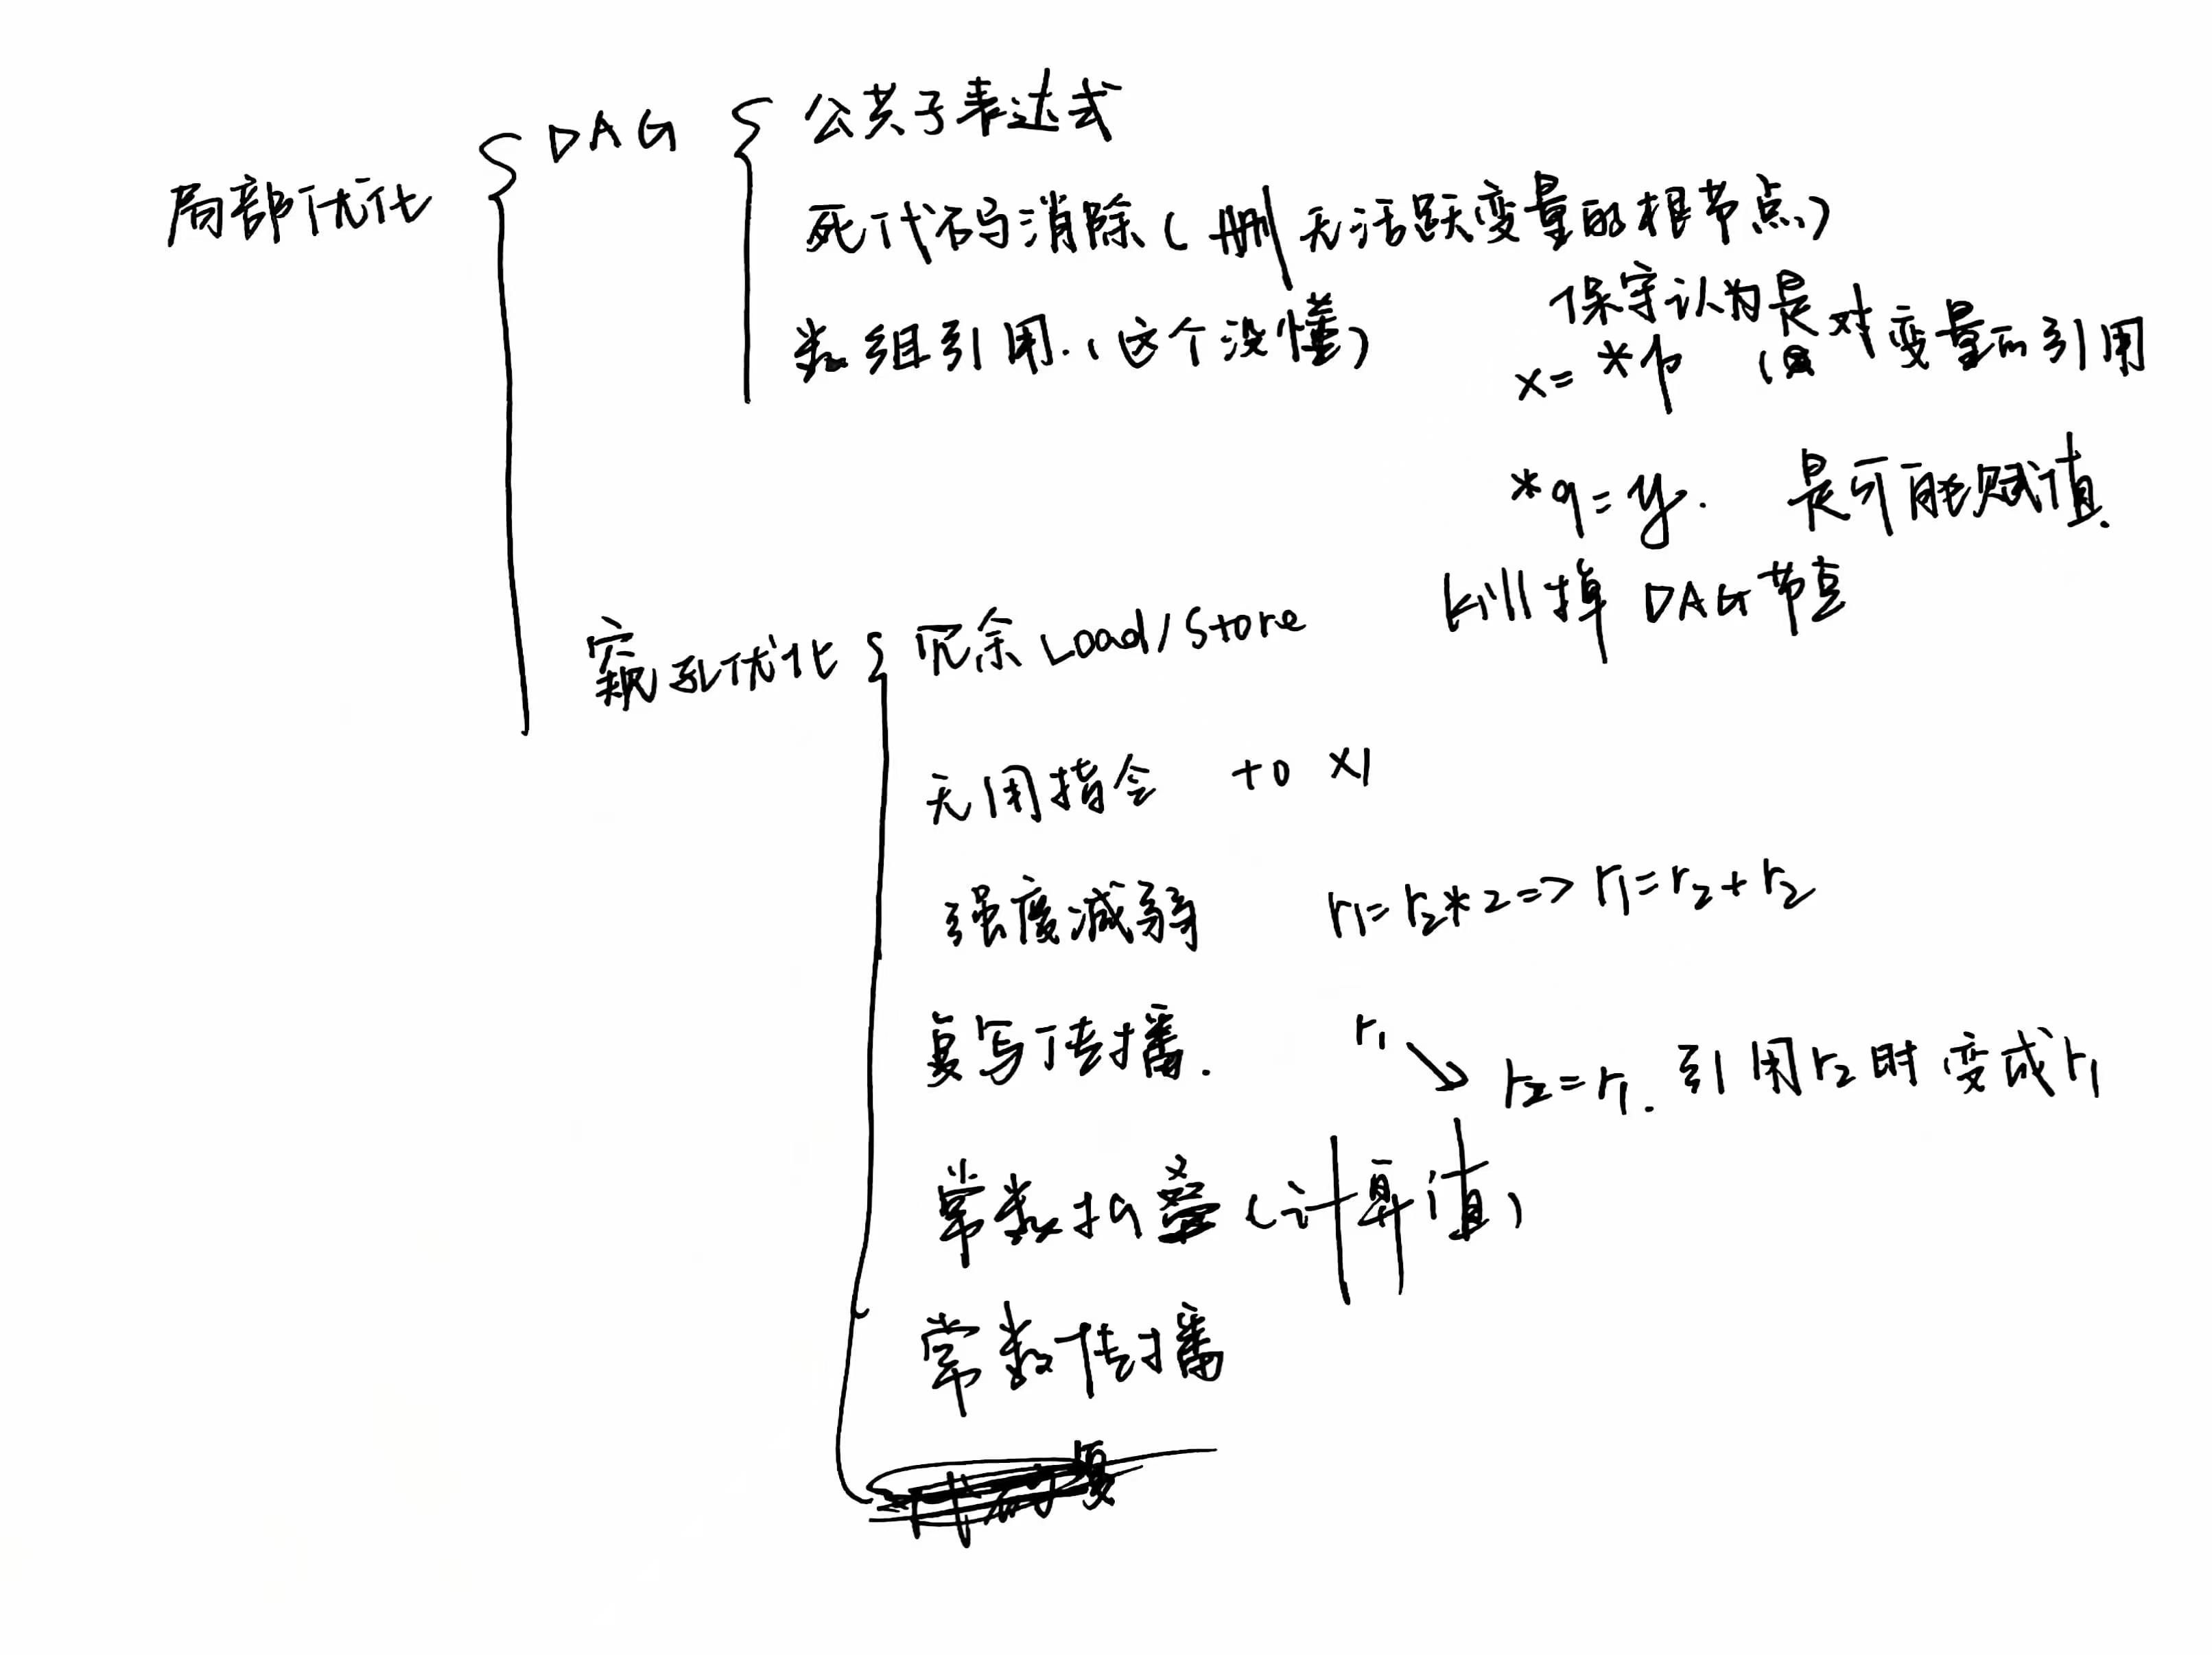 局部优化
DAG
公共子表达式
死代码消除(删无活跃变量的根节点)
数组引用.(这个没懂)
保守认为是对变量的引用
x = *p
*q = y. 是可能赋值.
kill掉 DAG节点
窥孔优化
冗余Load/Store
无用指令 +0 ×1
强度减弱 r1=r2*2=>r1=r2+r2
复写传播. r1 ↘ r2=r1. 引用r2时变成r1
常数折叠(计算值)
常数传播